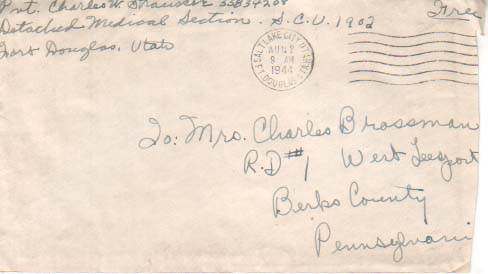 Pvt. Charles W. Strausser 33834208
Detached Medical Section. S.C.U. 1902
Fort Douglas, Utah
Free
SALT LAKE CITY, UTAH
AUG 2
9 AM
1944
FT. DOUGLAS STA.
To: Mrs. Charles Brossman
R.D #1 West Leesport
Berks County
Pennsylvani